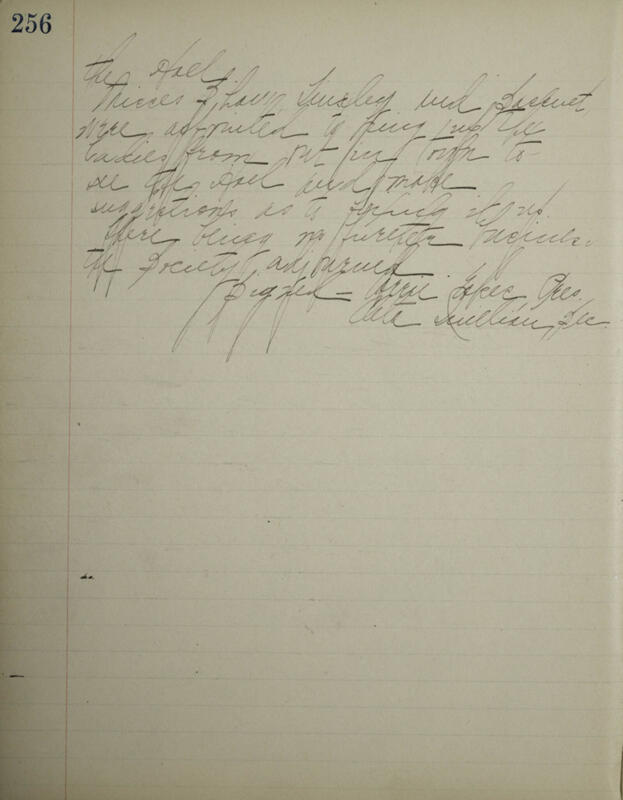 256
the Hall
Misses Lousley and
were appointed to bring in the
ladies from out in town to
see the Hall and make
sugestions as to fixing it up.
There being no further business
the Society adjourned
Signed — Pres.
Sullivan, Sec